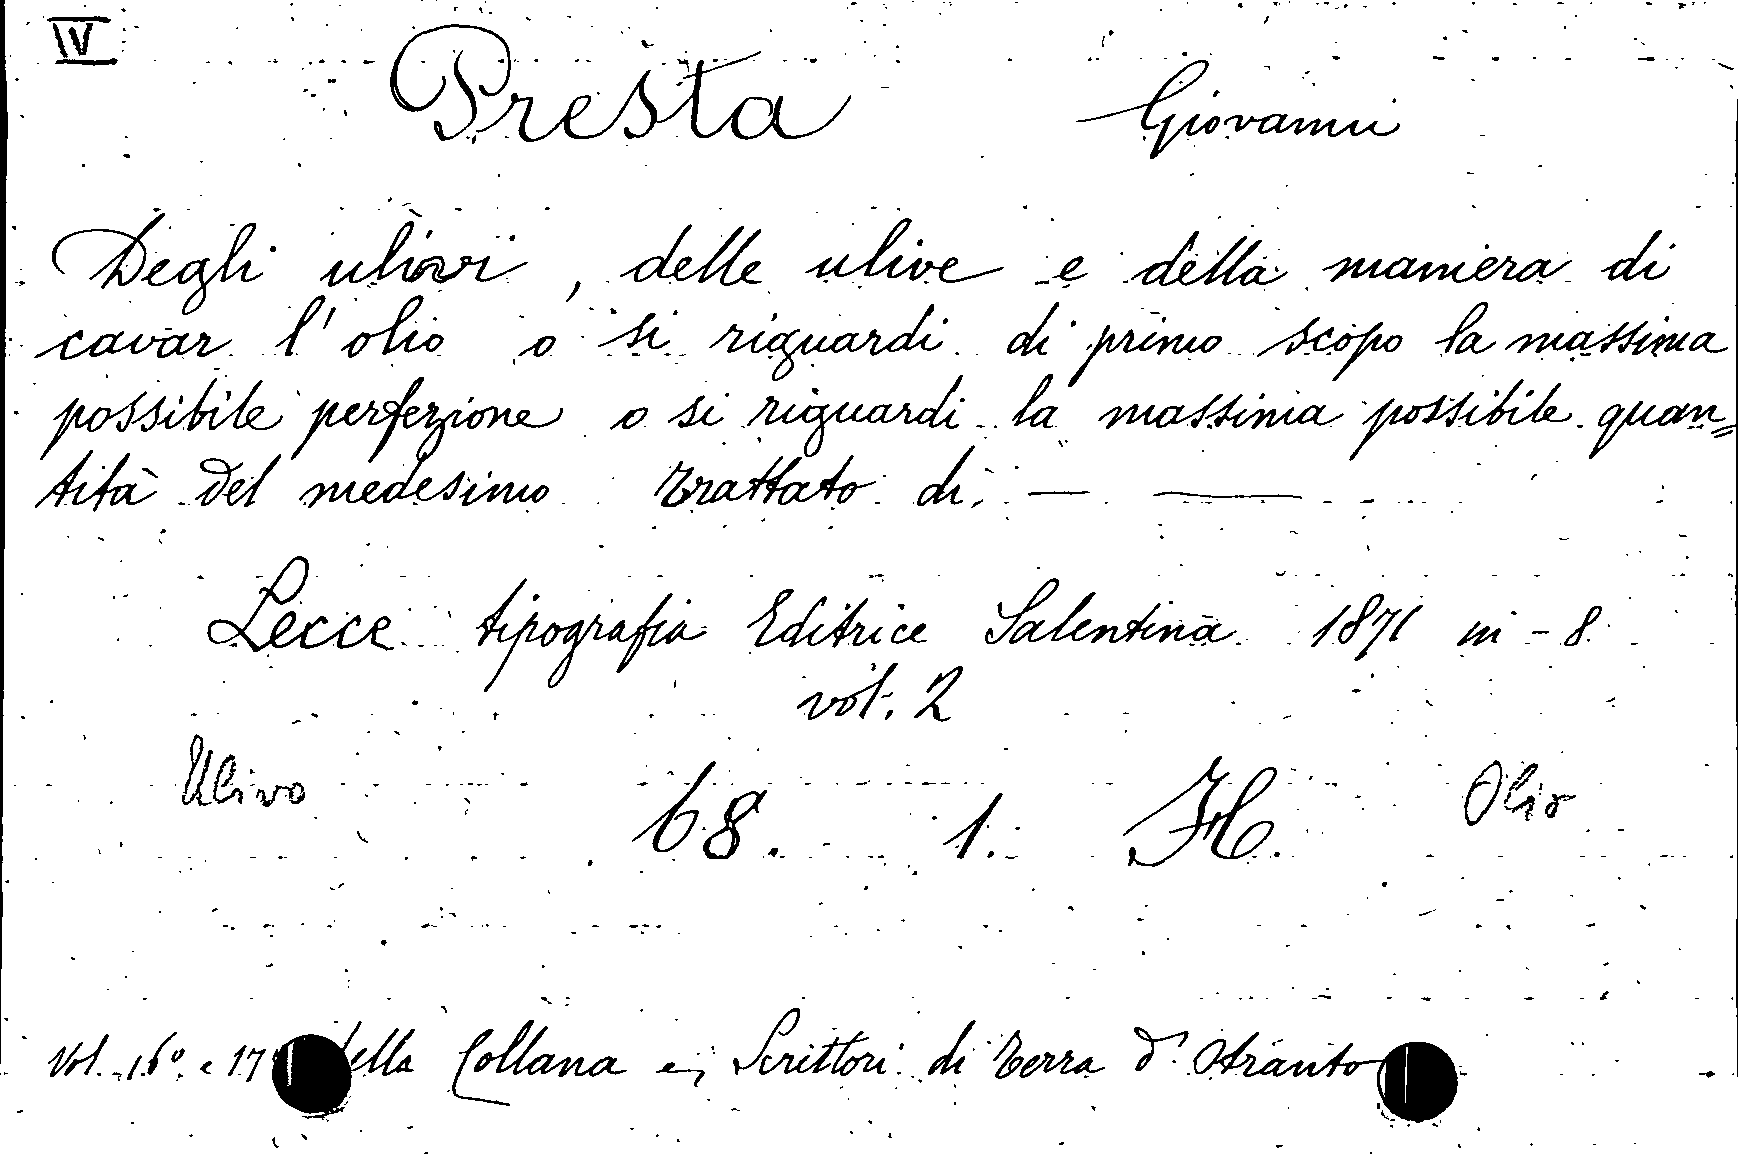 IV
Presta Giovanni
Degli ulivi, delle ulive e della maniera di
cavar l'olio o si riguardi di primo scopo la massima
possibile perfezione o si riguardi la massima possibile quan=
tità del medesimo Trattato di. — —
Lecce tipografia Editrice Salentina 1871 in-8
vol. 2
Ulivo 68. 1. H. Olio
Vol. 16° e 17 della Collana Scrittori di Terra d'Otranto